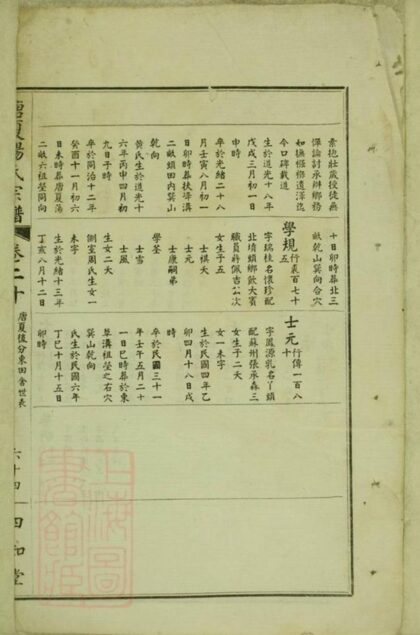 素抱壯歲授徒無
憚論討承辦鄉務
如撫恤務遺澤迄
今口碑載道
生於道光十八年
戊戌三月初一日
申時
卒於光緒二十八
月壬寅八月初一
日卯時葬扶溝
二畝頭田內巽山
乾向
黃氏生於道光十
六年丙申四月初
九日子時
卒於同治十二年
癸酉十一月初六
日未時葬唐夏蕩
二畝六祖塋同向
十日卯時葬北三
畝乾山巽向合穴
學規 行義百七十五
字瑞桂名懷珍配
北鎮鄉飲大賓
職員蔣佩吉公次
女生子五
士棋夭
士康嗣弟
學荃
士雪
士風
生女二夭
側室周氏生女一
未字
生於光緒十三年
丁亥八月十二日
士元 行傳一百八十
字鳳源乳名丫頭
配蘇州張承森三
女生子二夭
女一未字
生於民國四年乙
卯四月十八日戌
時
卒於民國三十一
年壬午五月二十
一日巳時葬於東
草溝祖塋之右穴
巽山乾向
氏生於民國六年
丁巳十月十五日
卯時
唐夏楊氏宗譜
卷二十
唐夏恆分東田舍世表
六十四
四知堂
上海圖書館藏